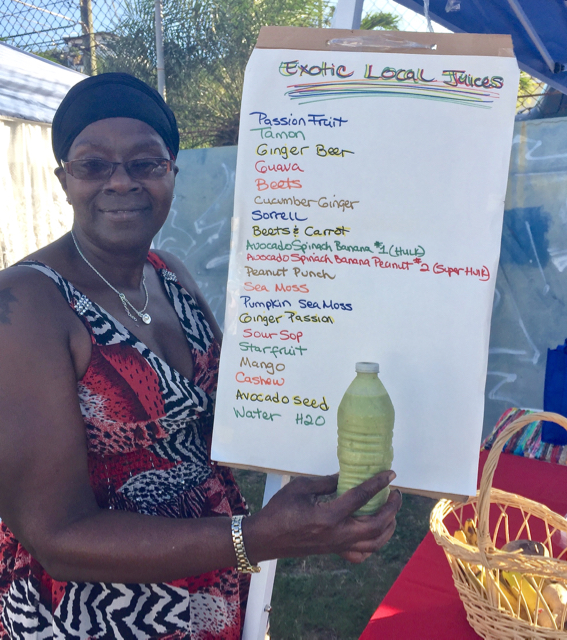 Exotic Local Juices
Passion Fruit
Tamon
Ginger Beer
Guava
Beets
Cucumber-Ginger
Sorrell
Beets & Carrot
Avocado Spinach Banana #1 (Hulk)
Avocado Spinach Banana Peanut #2 (Super Hulk)
Peanut Punch
Sea Moss
Pumpkin Sea Moss
Ginger Passion
Sour Sop
Starfruit
Mango
Cashew
Avocado Seed
Water H2O